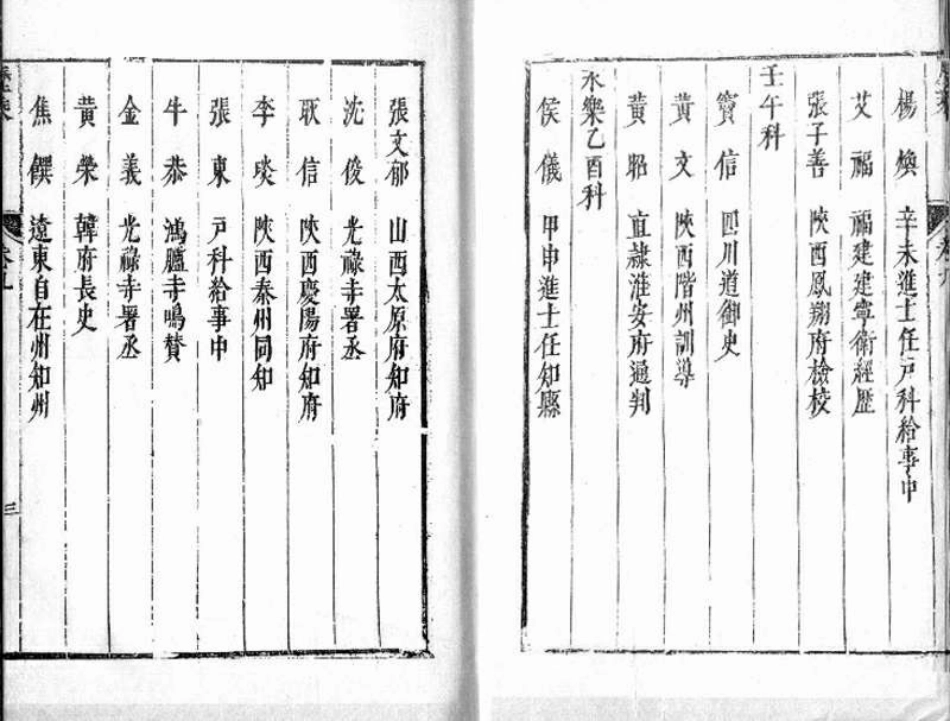 楊煥 辛未進士任戶科給事中
艾福 福建建寧衛經歷
張子善 陝西鳳翔府檢校
壬午科
竇信 四川道御史
黃文 陝西階州訓導
黃昭 直隸淮安府通判
永樂乙酉科
侯儀 甲申進士任知縣
張文郁 山西太原府知府
沈俊 光祿寺署丞
耿信 陝西慶陽府知府
李琰 陝西秦州同知
張東 戶科給事中
牛恭 鴻臚寺鳴贊
金義 光祿寺署丞
黃榮 韓府長史
焦饌 遼東自在州知州
卷九
三